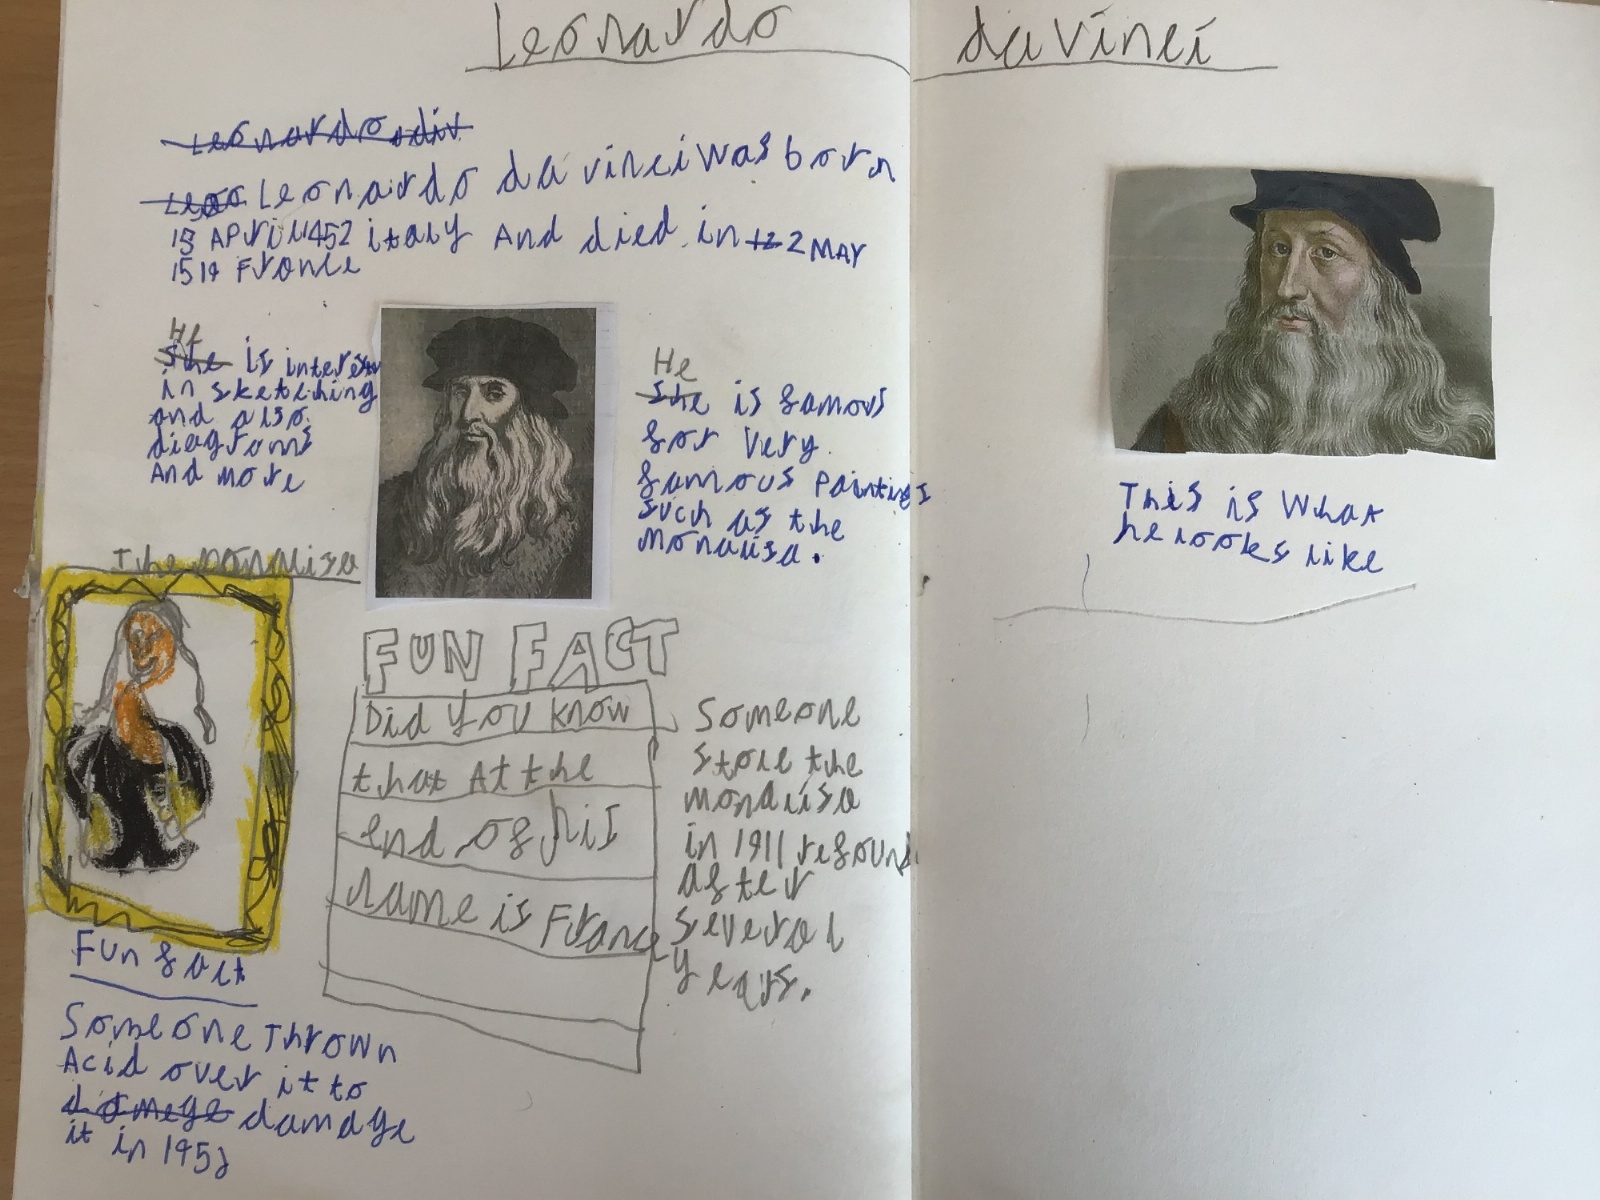 Leonardo da Vinci
Leonardo div
Leoo Leonardo da vinci was born
15 APril 1452 italy And died in 12 2 MAY
1519 France
He
She is interes
in sketching
and also
diagrams
And more
He
She is famous
for Very
famous Paintings
such as the
monalisa.
This is What
he looks like
The monalisa
FUN FACT
Did you know
that At the
end of his
name is France
Someone
stole the
monalisa
in 1911 refound
after
several
years.
Fun fact
Someone Thrown
Acid over it to
damege damage
it in